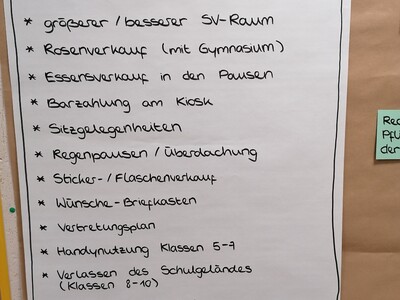 * größerer / besserer SV-Raum
* Rosenverkauf (mit Gymnasium)
* Essensverkauf in den Pausen
* Barzahlung am Kiosk
* Sitzgelegenheiten
* Regenpausen / Überdachung
* Sticker-/Flaschenverkauf
* Wünsche-Briefkasten
* Vertretungsplan
* Handynutzung Klassen 5-7
* Verlassen des Schulgeländes
(Klassen 8-10)
der